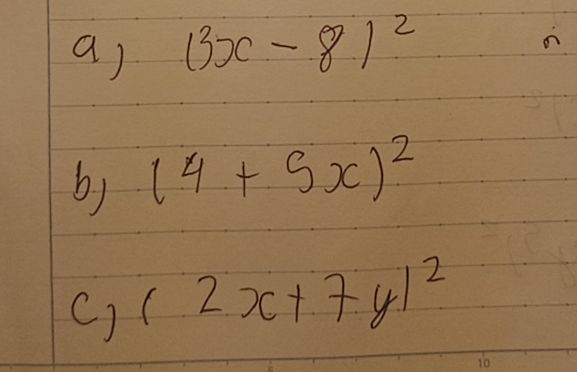 a) (3x - 8)²
b) (4 + 5x)²
c) ( 2x + 7y)²
10